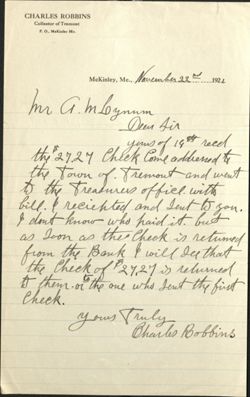 CHARLES ROBBINS
Collector of Tremont
P. O., McKinley Me.
McKinley, Me., November 22nd 1922
Mr. A. M. Lynum
Dear Sir
yours of 19th recd
the $27.27 Check Come addressed to
the Town of. Tremont and went
to the Treasurers office with
bill. I reciehted and Sent to you.
I dont know who paid it. but
as Soon as the Check is returned
from the Bank I will See that
the Check of $27.27 is returned
to them. or the one who Sent the first
Check.
yours Truly
Charles Robbins